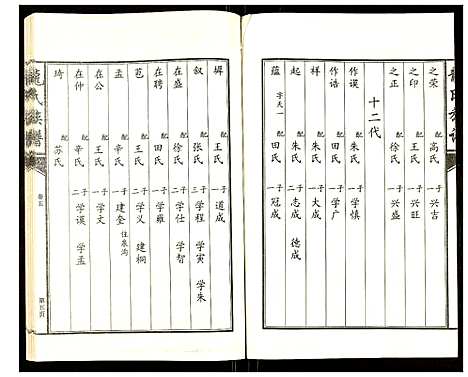 龍氏族譜
之荣 配 高氏 一子 兴吉
之印 配 王氏 一子 兴旺
之正 配 徐氏 一子 兴盛
十二代
作谟 配 朱氏 一子 学慎
作诰 配 田氏 一子 学广
祥 配 朱氏 一子 大成
起 配 朱氏 二子 志成 德成
蕴 字天一 配 田氏 一子 冠成
墀 配 王氏 一子 道成
叙 配 张氏 三子 学程 学寅 学朱
在盛 配 徐氏 二子 学仕 学智
在聘 配 田氏 一子 学雍
芑 配 王氏 二子 学义 建桐
孟 配 辛氏 一子 建奎 住泉沟
在公 配 王氏 一子 学文
在仲 配 辛氏 二子 学谟 学孟
琦 配 苏氏
龍氏族譜
卷五
第五页